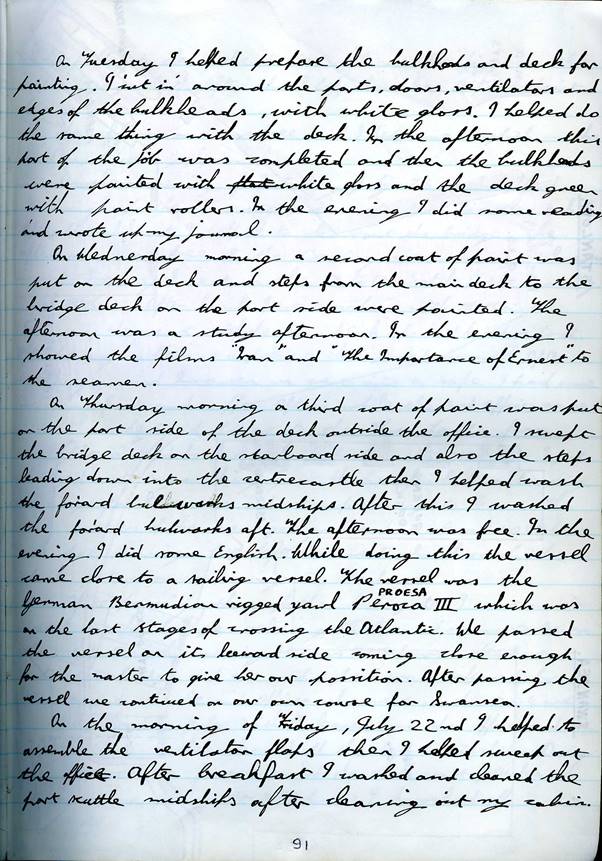 On Tuesday I helped prepare the bulkheads and deck for
painting. I 'cut in' around the ports, doors, ventilators and
edges of the bulkheads, with white gloss. I helped do
the same thing with the deck. In the afternoon this
part of the job was completed and then the bulkheads
were painted with flat white gloss and the deck green
with paint rollers. In the evening I did some reading
and wrote up my journal.
On Wednesday morning a second coat of paint was
put on the deck and steps from the main deck to the
bridge deck on the port side were painted. The
afternoon was a study afternoon. In the evening I
showed the films "Ivan" and "The Importance of Ernest" to
the seamen.
On Thursday morning a third coat of paint was put
on the port side of the deck outside the office. I swept
the bridge deck on the starboard side and also the steps
leading down into the centrecastle then I helped wash
the for'ard bulwarks midships. After this I washed
the for'ard bulwarks aft. The afternoon was free. In the
evening I did some English. While doing this the vessel
came close to a sailing vessel. The vessel was the
PROESA
German Bermudian rigged yawl Peroca III which was
on the last stages of crossing the Atlantic. We passed
the vessel on its leeward side coming close enough
for the master to give her our possition. After passing the
vessel we continued on our own course for Swansea.
On the morning of Friday, July 22nd I helped to
assemble the ventilator flaps then I helped sweep out
the office. After breakfast I washed and cleaned the
port scuttle midships after cleaning out my cabin.
91